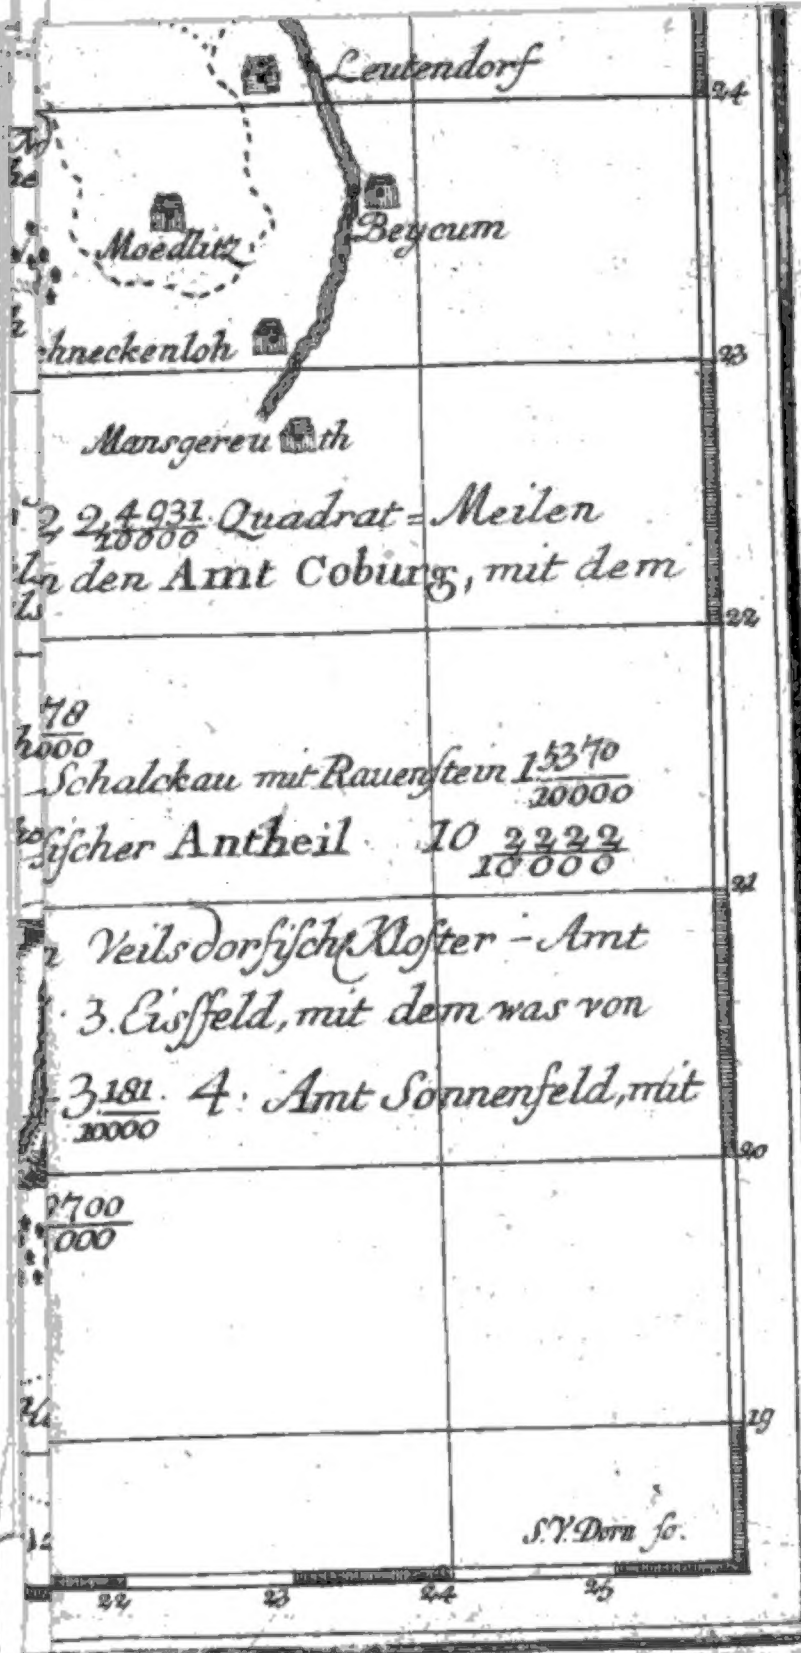 Leutendorf
24
Beycum
Moedlitz
chneckenloh
23
Mansgereuth
2 2,4931/10000 Quadrat=Meilen
n den Amt Coburg, mit dem
22
78/000
Schalckau mit Rauenſtein 1 5370/10000
ſiſcher Antheil 10 2222/10000
21
n Veilsdorfiſch Kloſter-Amt
3. Eisffeld, mit dem was von
3 181/10000. 4. Amt Sonnenfeld, mit
20
2700/000
19
S.V. Dorn ſc.
22 23 24 25